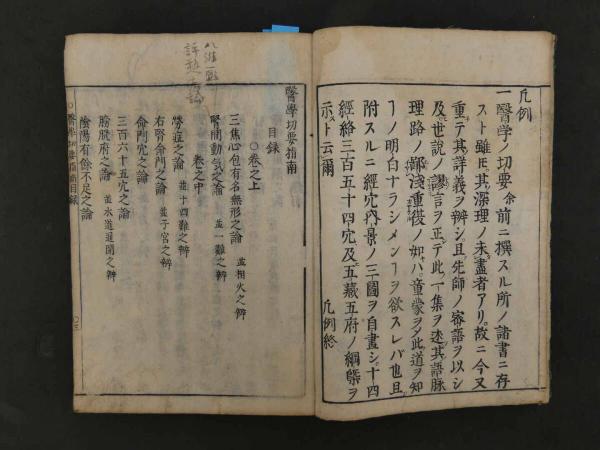 凡例
一醫學ノ切要余前ニ撰スル所ノ諸書ニ存
スト雖𪜈其深理ノ未盡者アリ故ニ今又
重テ其詳義ヲ辨シ且先師ノ審語ヲ以シ
及世說ノ謬言ヲ正テ此一集ヲ述其語脉
理路ノ鄙淺重複ノ如ハ童蒙ヲ〆此道ヲ知
ヿノ明白ナラシメンヿヲ欲スレバ也且
附スルニ經穴内景ノ三圖ヲ自畫シ十四
經絡三百五十四穴及五藏五府ノ綱槩ヲ
示スト云爾
凡例終
醫學切要指南
目録
○卷之上
三焦心包有名無形之論 並相火之辨
腎間動氣之論 並一難之辨
卷之中
勞瘵之論 並十四難之辨
右腎命門之論 並子宮之辨
命門穴之論
三百六十五穴之論
膀胱府之論 並水道通閉之辨
陰陽有餘不足之論
○醫學切要指南目録